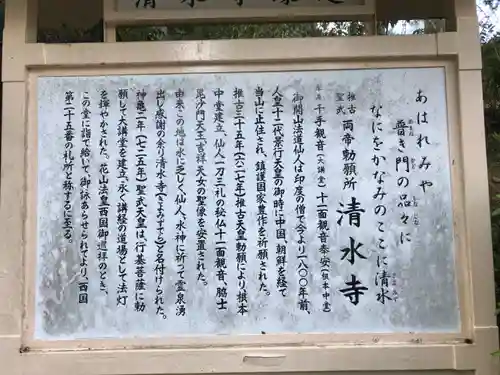 あはれみや
普き門の品々に
なにをかなみのここに清水
推古
聖武 両帝勅願所 清水寺
本尊 千手観音(大講堂)十一面観音奉安(根本中堂)
御開山法道仙人は印度の僧で今より一八〇〇年前、
人皇十二代景行天皇の御時に中国、朝鮮を経て
当山に止住され、鎮護国家豊作を祈願された。
推古三十五年(六二七年)推古天皇勅願により根本
中堂建立、仙人一刀三礼の秘仏十一面観音、脇士
毘沙門天王、吉祥天女の聖像を安置された。
由来この地は水に乏しく、仙人、水神に祈って霊泉湧
出し感謝の余り清水寺(きよみずでら)と名付けられた。
神亀二年(七二五年)聖武天皇は行基菩薩に勅
願して大講堂を建立、永く講経の道場として法灯
を輝やかされた。花山法皇西国御巡祥のとき、
この堂に詣で給いて、御詠あらせられてより、西国
第二十五番の札所と称するに至る。